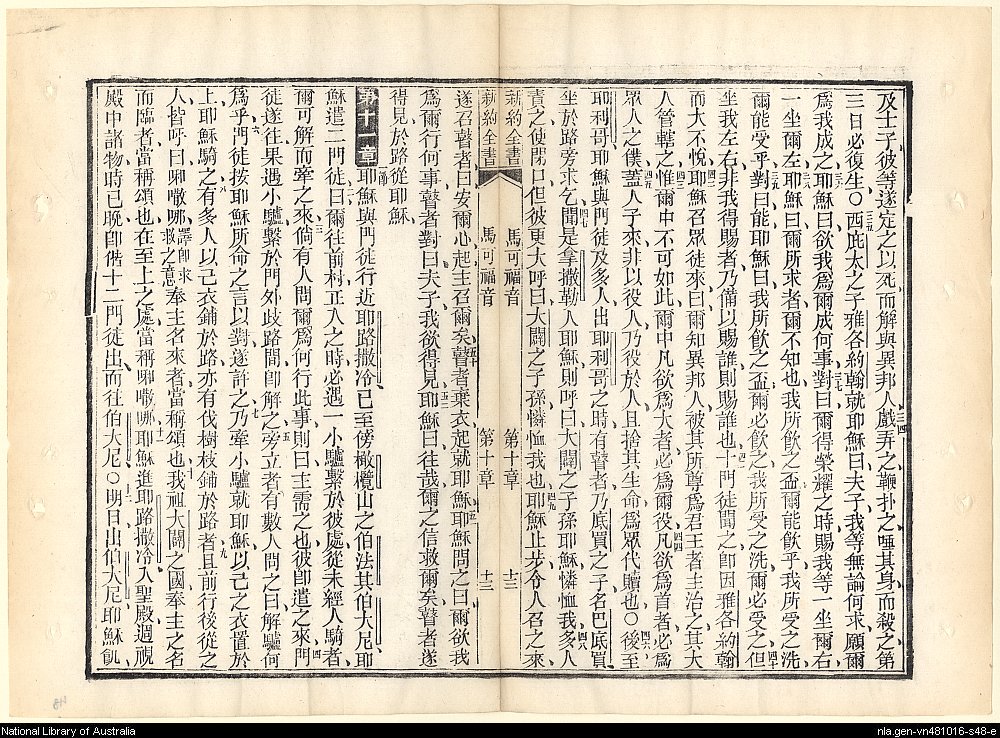 及士子彼等遂定之以死而解與異邦人戲弄之鞭扑之唾其身而殺之第
三日必復生○西庇太之子雅各約翰就耶穌曰夫子我等無論何求願爾
爲我成之耶穌曰欲我爲爾成何事對曰爾得榮耀之時賜我等一坐爾右
一坐爾左耶穌曰爾所求者爾不知也我所飲之盃爾能飲乎我所受之洗
爾能受乎對曰能耶穌曰我所飲之盃爾必飲之我所受之洗爾必受之但
坐我左右非我得賜者乃備以賜誰則賜誰也十門徒聞之卽因雅各約翰
而大不悅耶穌召眾徒來曰爾知異邦人被其所尊爲君王者主治之其大
人管轄之惟爾中不可如此爾中凡欲爲大者必爲爾役凡欲爲首者必爲
眾人之僕蓋人子來非以役人乃役於人且捨其生命爲眾代贖也○後至
耶利哥耶穌與門徒及多人出耶利哥之時有瞽者乃底買之子名巴底買
坐於路旁求乞聞是拿撒勒人耶穌則呼曰大闢之子孫耶穌憐恤我多人
責之使閉口但彼更大呼曰大闢之子孫憐恤我也耶穌止步令人召之來
新約全書 馬可福音 第十章 十三
新約全書 馬可福音 第十章 十三
遂召瞽者曰安爾心起主召爾矣瞽者棄衣起就耶穌耶穌問之曰爾欲我
爲爾行何事瞽者對曰夫子我欲得見耶穌曰往哉爾之信救爾矣瞽者遂
得見於路從耶穌
第十一章 耶穌與門徒行近耶路撒冷已至傍橄欖山之伯法其伯大尼耶
穌遣二門徒曰爾往前村正入之時必遇一小驢繫於彼處從未經人騎者
爾可解而牽之來倘有人問爾爲何行此事則曰主需之也彼卽遣之來門
徒遂往果遇小驢繫於門外歧路間卽解之旁立者有數人問之曰解驢何
爲乎門徒按耶穌所命之言以對遂許之乃牽小驢就耶穌以己之衣置於
上耶穌騎之有多人以己衣鋪於路亦有伐樹枝鋪於路者且前行後從之
人皆呼曰㖿㗣哪譯卽求救之意奉主名來者當稱頌也我祖大闢之國奉主之名
而臨者當稱頌也在至上之處當稱㖿㗣哪耶穌進耶路撒冷入聖殿週視
殿中諸物時已晚卽偕十二門徒出而往伯大尼○明日出伯大尼耶穌飢
National Library of Australia
nla.gen-vn481016-s48-e